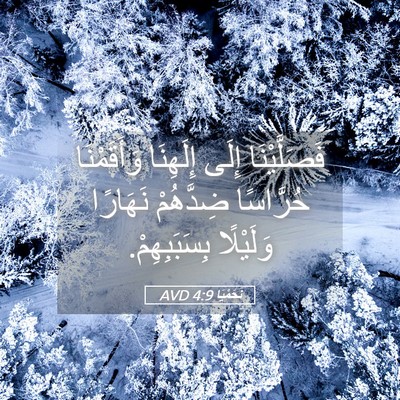 فَصَلَّيْنَا إِلَى إِلَهِنَا وَأَقَمْنَا
حُرَّاسًا ضِدَّهُمْ نَهَارًا
وَلَيْلًا بِسَبَبِهِمْ.
نَحَمْيَا 4:9 AVD